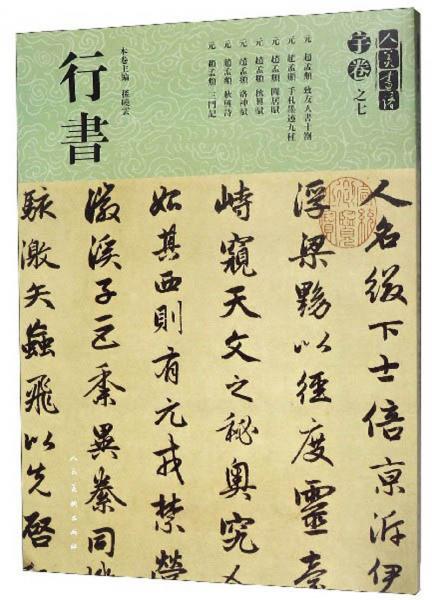 人美書譜
宇卷之七
元 趙孟頫 致友人書十劄
元 趙孟頫 手札墨迹九種
元 趙孟頫 閑居賦
元 趙孟頫 秋興賦
元 趙孟頫 洛神賦
元 趙孟頫 秋興詩
元 趙孟頫 三門記
本卷主編 孫曉雲
行書
人名綴下士倍京泝伊
浮梁黝以徑度靈臺
峙窺天文之秘奧究人
始其西則有元戎禁營
徽溪子巨黍異絭同機
駭激矢蝱飛以先啓
人民美術出版社